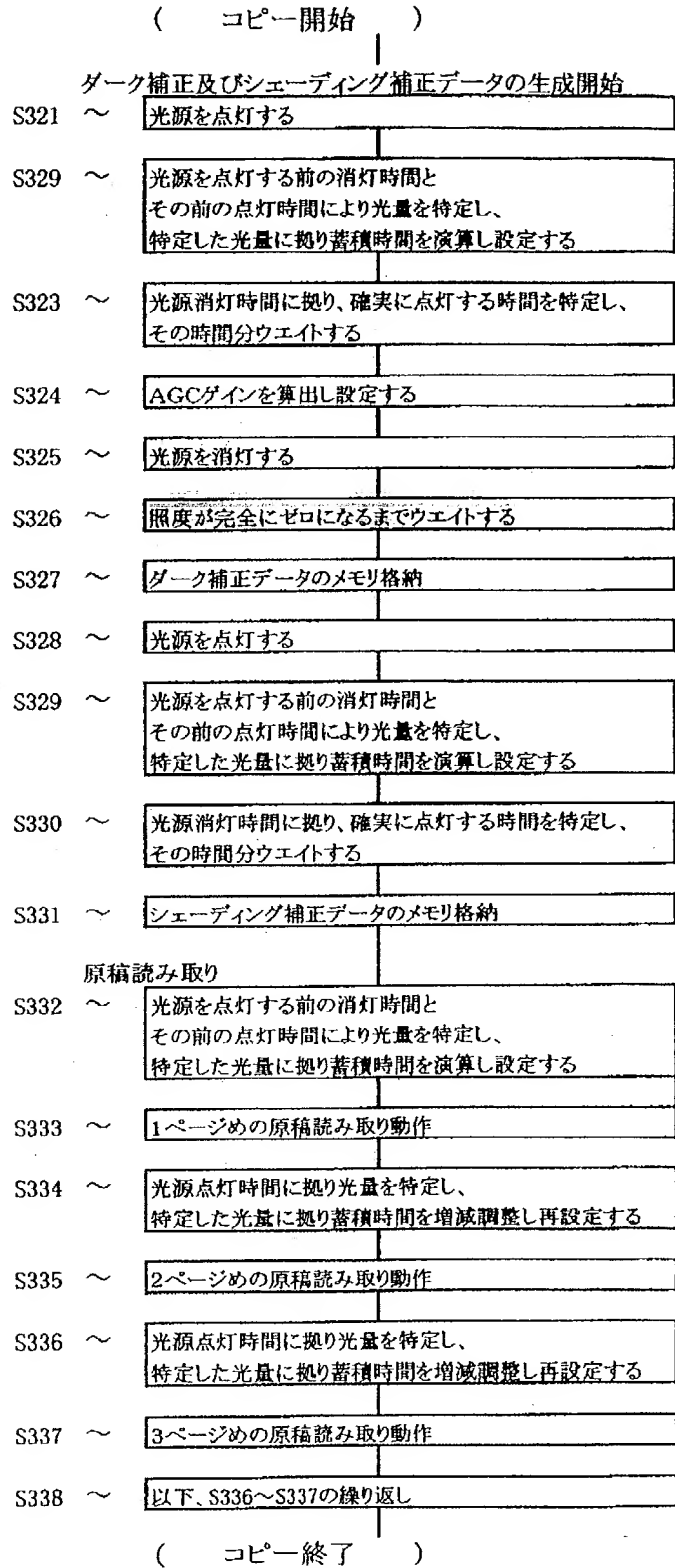 ( コピー開始 )
ダーク補正及びシェーディング補正データの生成開始
S321 ～ 光源を点灯する
S329 ～ 光源を点灯する前の消灯時間と
その前の点灯時間により光量を特定し、
特定した光量に拠り蓄積時間を演算し設定する
S323 ～ 光源消灯時間に拠り、確実に点灯する時間を特定し、
その時間分ウエイトする
S324 ～ AGCゲインを算出し設定する
S325 ～ 光源を消灯する
S326 ～ 照度が完全にゼロになるまでウエイトする
S327 ～ ダーク補正データのメモリ格納
S328 ～ 光源を点灯する
S329 ～ 光源を点灯する前の消灯時間と
その前の点灯時間により光量を特定し、
特定した光量に拠り蓄積時間を演算し設定する
S330 ～ 光源消灯時間に拠り、確実に点灯する時間を特定し、
その時間分ウエイトする
S331 ～ シェーディング補正データのメモリ格納
原稿読み取り
S332 ～ 光源を点灯する前の消灯時間と
その前の点灯時間により光量を特定し、
特定した光量に拠り蓄積時間を演算し設定する
S333 ～ 1ページめの原稿読み取り動作
S334 ～ 光源点灯時間に拠り光量を特定し、
特定した光量に拠り蓄積時間を増減調整し再設定する
S335 ～ 2ページめの原稿読み取り動作
S336 ～ 光源点灯時間に拠り光量を特定し、
特定した光量に拠り蓄積時間を増減調整し再設定する
S337 ～ 3ページめの原稿読み取り動作
S338 ～ 以下、S336～S337の繰り返し
( コピー終了 )